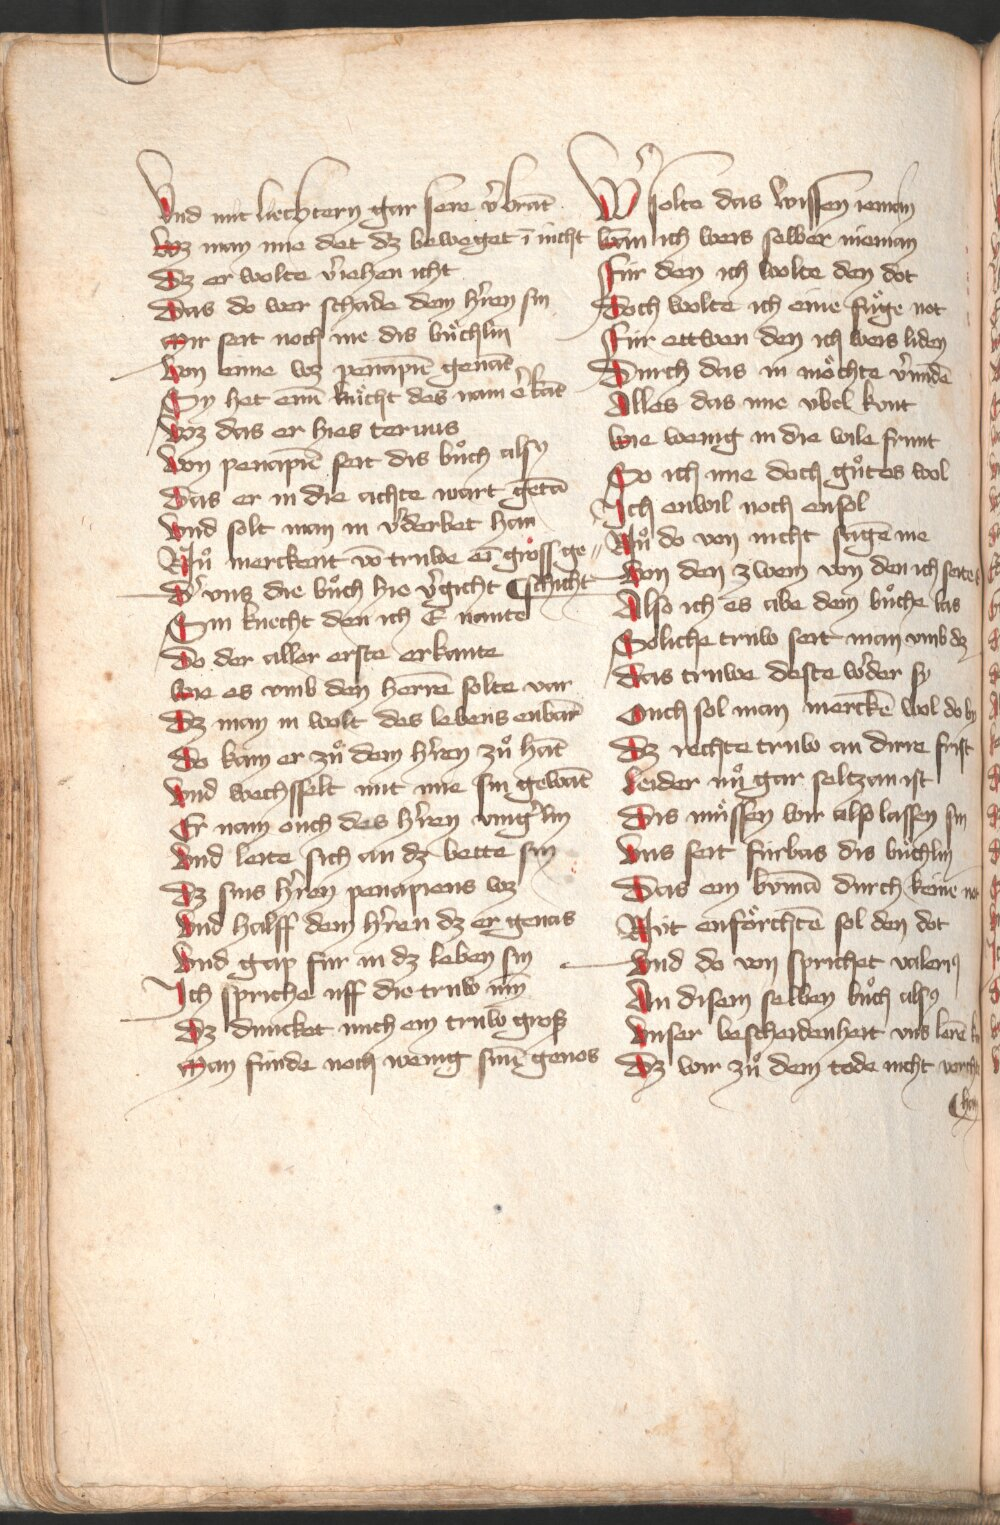 Und mit liechtern gar sere v̓brāt
Wz man ime det dz beweget ī nicht
Dz er wolte v̓iehen icht
Das do wer schade dem h̓ren sin
Mir seit noch me dis bůchlin
Von eime wz penapiē genāt
Sy het einē knecht des nam e̓kāt
Woz das er hies teruus
Von penapiē seit dis bůch alsꝰ
Das er in die achte wart getā
Und solt man in v̓derbet han
Nů merckent vō truwe eī gross ge〃
D̓ uns die bůch hie v̓gicht schicht
Sin knecht den ich E nante
Do der aller erste erkante
Wie es umb den herrē solte var
Dz man in wolt des lebens enbar
Do kam er zů dem h̓ren zů hāt
Und wechsselt mit ime sin gewāt
Er nam ouch des h̓ren ving̓lin
Und leite sich an dz bette sin
Dz sins h̓ren penapiens wz
Und halff dem h̓ren dz er genas
Und gap für in dz leben sin
Ich spriche uff die truw min
Dz duncket mich ein truw gross
Man funde noch wenig sinē genos
W̓ solte das wissen ieman
Wan ich weis selber nieman
Für den ich wolte den dot
Doch wolte ich eine fůge not
Für ettwen den ich weis liden
Durch das in möchte v̓miden
Alles das ime ubel kunt
Wie wenig in die wile frunt
So ich ime doch gůtes wol
Ich enwil noch ensol
Nů do von nicht sagē me
Von den zwein von den ich seite
Also ich es abe dem bůche las
Soliche truw seit man umb dz
Das truwe deste w̓der sy
Ouch sol man merckē wol do by
Dz rechte truw an dirre frist
Leider nů gar seltzan ist
Dis müssen wir also lassen sin
Uns seit fürbas dis büchlin
Das ein bidmā durch keine not
Nüt enförchtē sol den dot
Und do von sprichet valeriꝰ
An disem selben bůch alsꝰ
Unser bescheidenheit uns lerē
Dz wir zů dem tode nicht vorcht
han